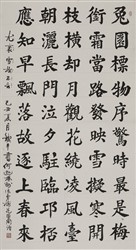 兔園標物序驚時最是梅
銜霜當路發映雪擬寒開
枝橫却月觀花繞凌風臺
朝灑長門泣夕駐臨邛杯
應知早飄落故逐上春來